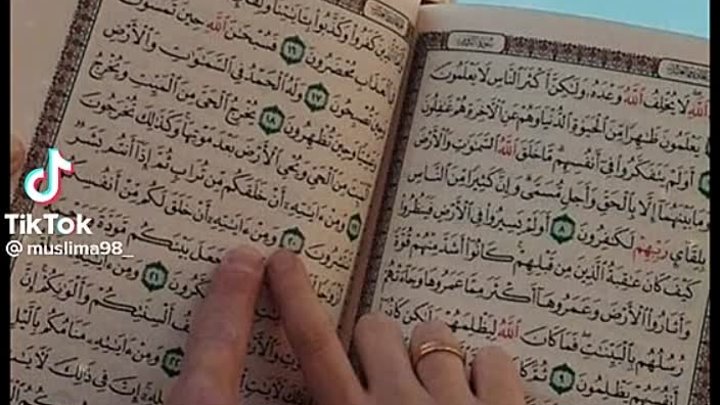 ٱللَّهِ لَا يُخْلِفُ ٱللَّهُ وَعْدَهُۥ وَلَٰكِنَّ أَكْثَرَ ٱلنَّاسِ لَا يَعْلَمُونَ
يَعْلَمُونَ ظَٰهِرًا مِّنَ ٱلْحَيَوٰةِ ٱلدُّنْيَا وَهُمْ عَنِ ٱلْءَاخِرَةِ هُمْ غَٰفِلُونَ
أَوَلَمْ يَتَفَكَّرُوا۟ فِىٓ أَنفُسِهِم مَّا خَلَقَ ٱللَّهُ ٱلسَّمَٰوَٰتِ وَٱلْأَرْضَ
وَمَا بَيْنَهُمَآ إِلَّا بِٱلْحَقِّ وَأَجَلٍ مُّسَمًّى وَإِنَّ كَثِيرًا مِّنَ ٱلنَّاسِ
بِلِقَآئِ رَبِّهِمْ لَكَٰفِرُونَ ٨ أَوَلَمْ يَسِيرُوا۟ فِى ٱلْأَرْضِ فَيَنظُرُوا۟
كَيْفَ كَانَ عَٰقِبَةُ ٱلَّذِينَ مِن قَبْلِهِمْ كَانُوٓا۟ أَشَدَّ مِنْهُمْ قُوَّةً
وَأَثَارُوا۟ ٱلْأَرْضَ وَعَمَرُوهَآ أَكْثَرَ مِمَّا عَمَرُوهَا وَجَآءَتْهُمْ
رُسُلُهُم بِٱلْبَيِّنَٰتِ فَمَا كَانَ ٱللَّهُ لِيَظْلِمَهُمْ وَلَٰكِن كَانُوٓا۟
أَنفُسَهُمْ يَظْلِمُونَ ٩ ثُمَّ كَا
كَفَرُوا۟ وَكَذَّبُوا۟ بِـَٔايَٰتِنَا وَلِقَآ
ٱلْعَذَابِ مُحْضَرُونَ ١٦ فَسُبْحَٰنَ ٱللَّهِ حِينَ تُمْسُونَ
وَحِينَ تُصْبِحُونَ ١٧ وَلَهُ ٱلْحَمْدُ فِى ٱلسَّمَٰوَٰتِ وَٱلْأَرْضِ
وَعَشِيًّا وَحِينَ تُظْهِرُونَ ١٨ يُخْرِجُ ٱلْحَىَّ مِنَ ٱلْمَيِّتِ وَيُخْرِجُ
ٱلْمَيِّتَ مِنَ ٱلْحَىِّ وَيُحْىِ ٱلْأَرْضَ بَعْدَ مَوْتِهَا وَكَذَٰلِكَ تُخْرَجُونَ
١٩ وَمِنْ ءَايَٰتِهِۦٓ أَنْ خَلَقَكُم مِّن تُرَابٍ ثُمَّ إِذَآ أَنتُم بَشَرٌ
تَنتَشِرُونَ ٢٠ وَمِنْ ءَايَٰتِهِۦٓ أَنْ خَلَقَ لَكُم مِّنْ أَنفُسِكُمْ
أَزْوَٰجًا جَعَلَ بَيْنَكُم مَّوَدَّةً
٢١ وَمِنْ ءَايَٰتِهِۦ
أَلْسِنَتِكُمْ وَأَلْوَٰنِكُمْ إِنَّ
٢٢ وَمِنْ ءَايَٰتِهِۦ مَنَامُكُم بِٱلَّيْلِ
إِنَّ فِى ذَٰلِكَ لَءَايَٰتٍ
TikTok
@ muslima98_